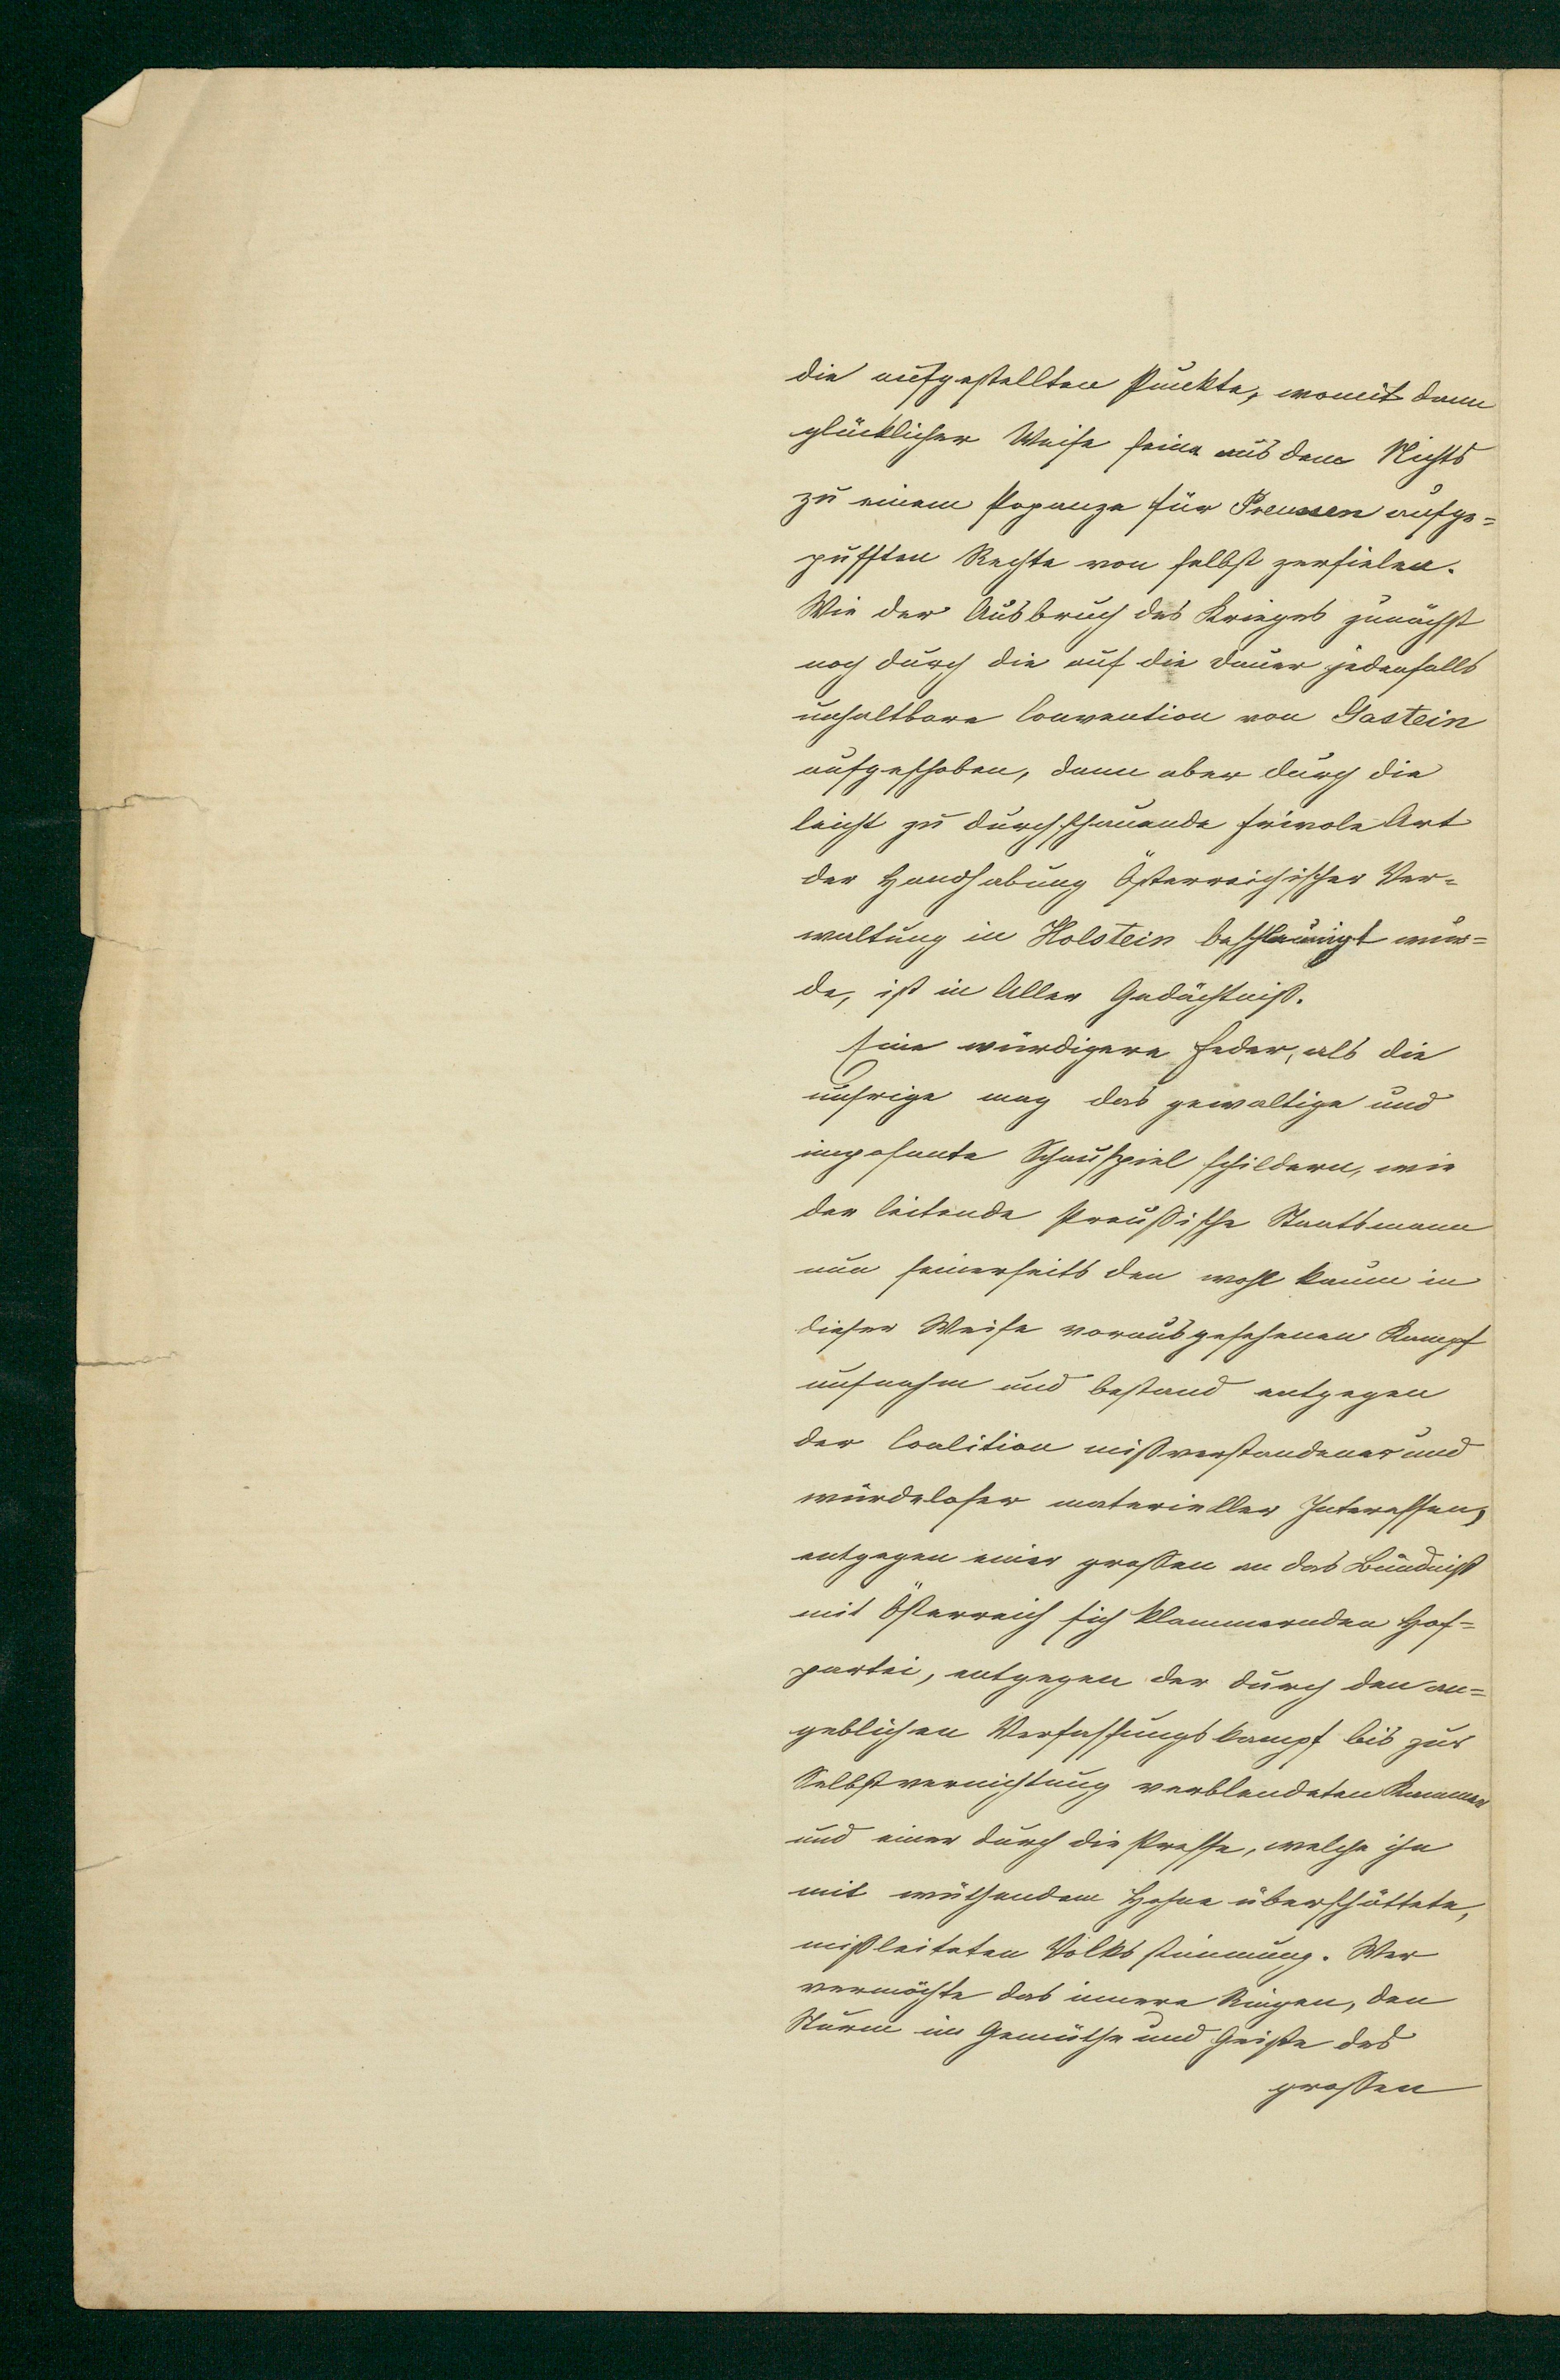 die aufgestellten Punkte, womit dann
glücklicher Weise seine aus dem Nichts
zu einem Popanze für Preussen aufge=
pufften Rechte von selbst zerfielen.
Wie der Ausbruch des Krieges zunächst
noch durch die auf die Dauer jedenfalls
unhaltbare Convention von Gastein
aufgeschoben, dann aber durch die
leicht zu durchschauende frivole Art
der Handhabung Österreichischer Ver=
waltung in Holstein beschleunigt wur=
de, ist in Aller Gedächtniß.
Eine würdigere Feder, als die
unsrige mag das gewaltige und
imposante Schauspiel schildern, wie
der leitende Preußische Staatsmann
nun seinerseits den wohl kaum in
dieser Weise vorausgesehenen Kampf
aufnahm und bestand entgegen
der Coalition mißverstandener und
würdeloser materieller Interessen,
entgegen einer großen an das Bündniß
mit Österreich sich klammernden Hof=
partei, entgegen der durch den an=
geblichen Verfassungskampf bis zur
Selbstvernichtung verblendeten Kammer
und einer durch die Presse, welche ihn
mit wüthendem Hohne überschüttete,
mißleiteten Volksstimmung. Wer
vermöchte das innere Ringen, den
Sturm im Gemüthe und Geiste des
großen